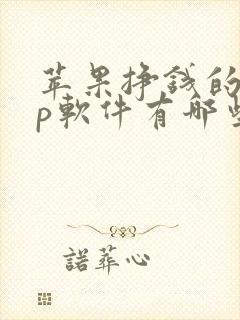 苹果挣钱的
p软件有哪些
諾葬心